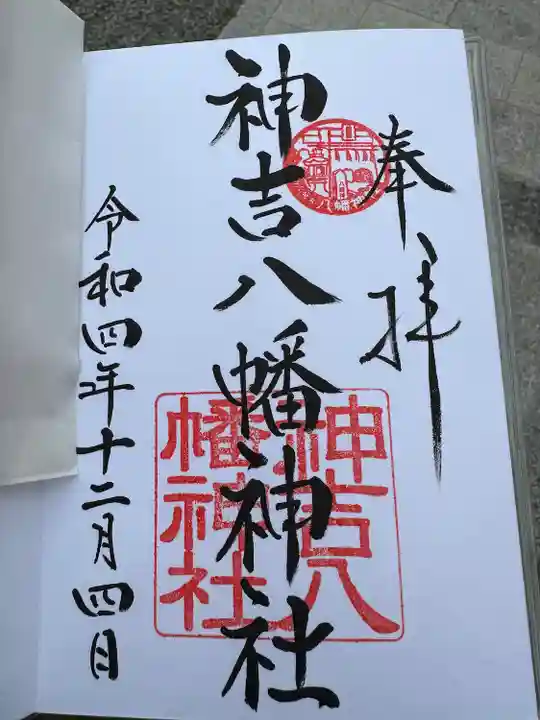 奉拝
神吉八幡神社
神吉八
幡神社
八幡神
令和四年十二月四日